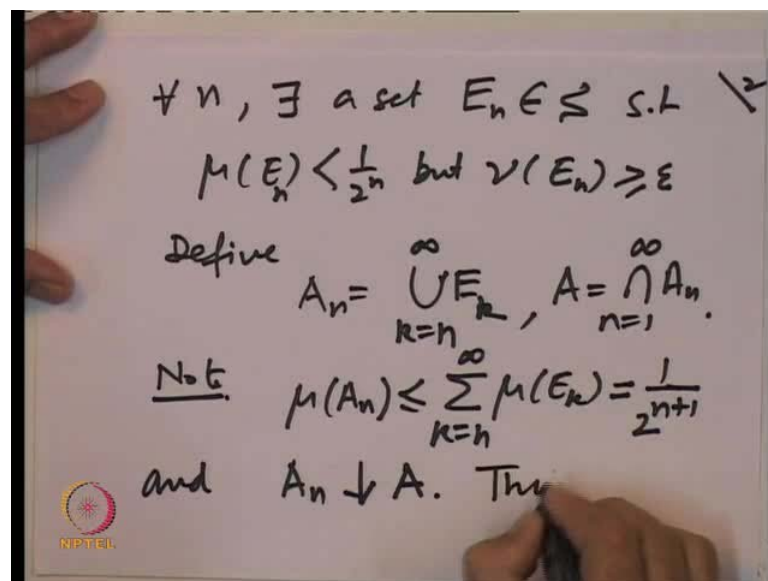 ∀ n, ∃ a set Eₙ ∈ S s.t
μ(Eₙ) < 1/2ⁿ but ν(Eₙ) ≥ ε
Define
Aₙ = ⋃_{k=n}^{∞} E_k, A = ⋂_{n=1}^{∞} Aₙ.
Note μ(Aₙ) ≤ ∑_{k=n}^{∞} μ(E_k) = 1/2ⁿ⁺¹
and Aₙ ↓ A. Thu
NPTEL